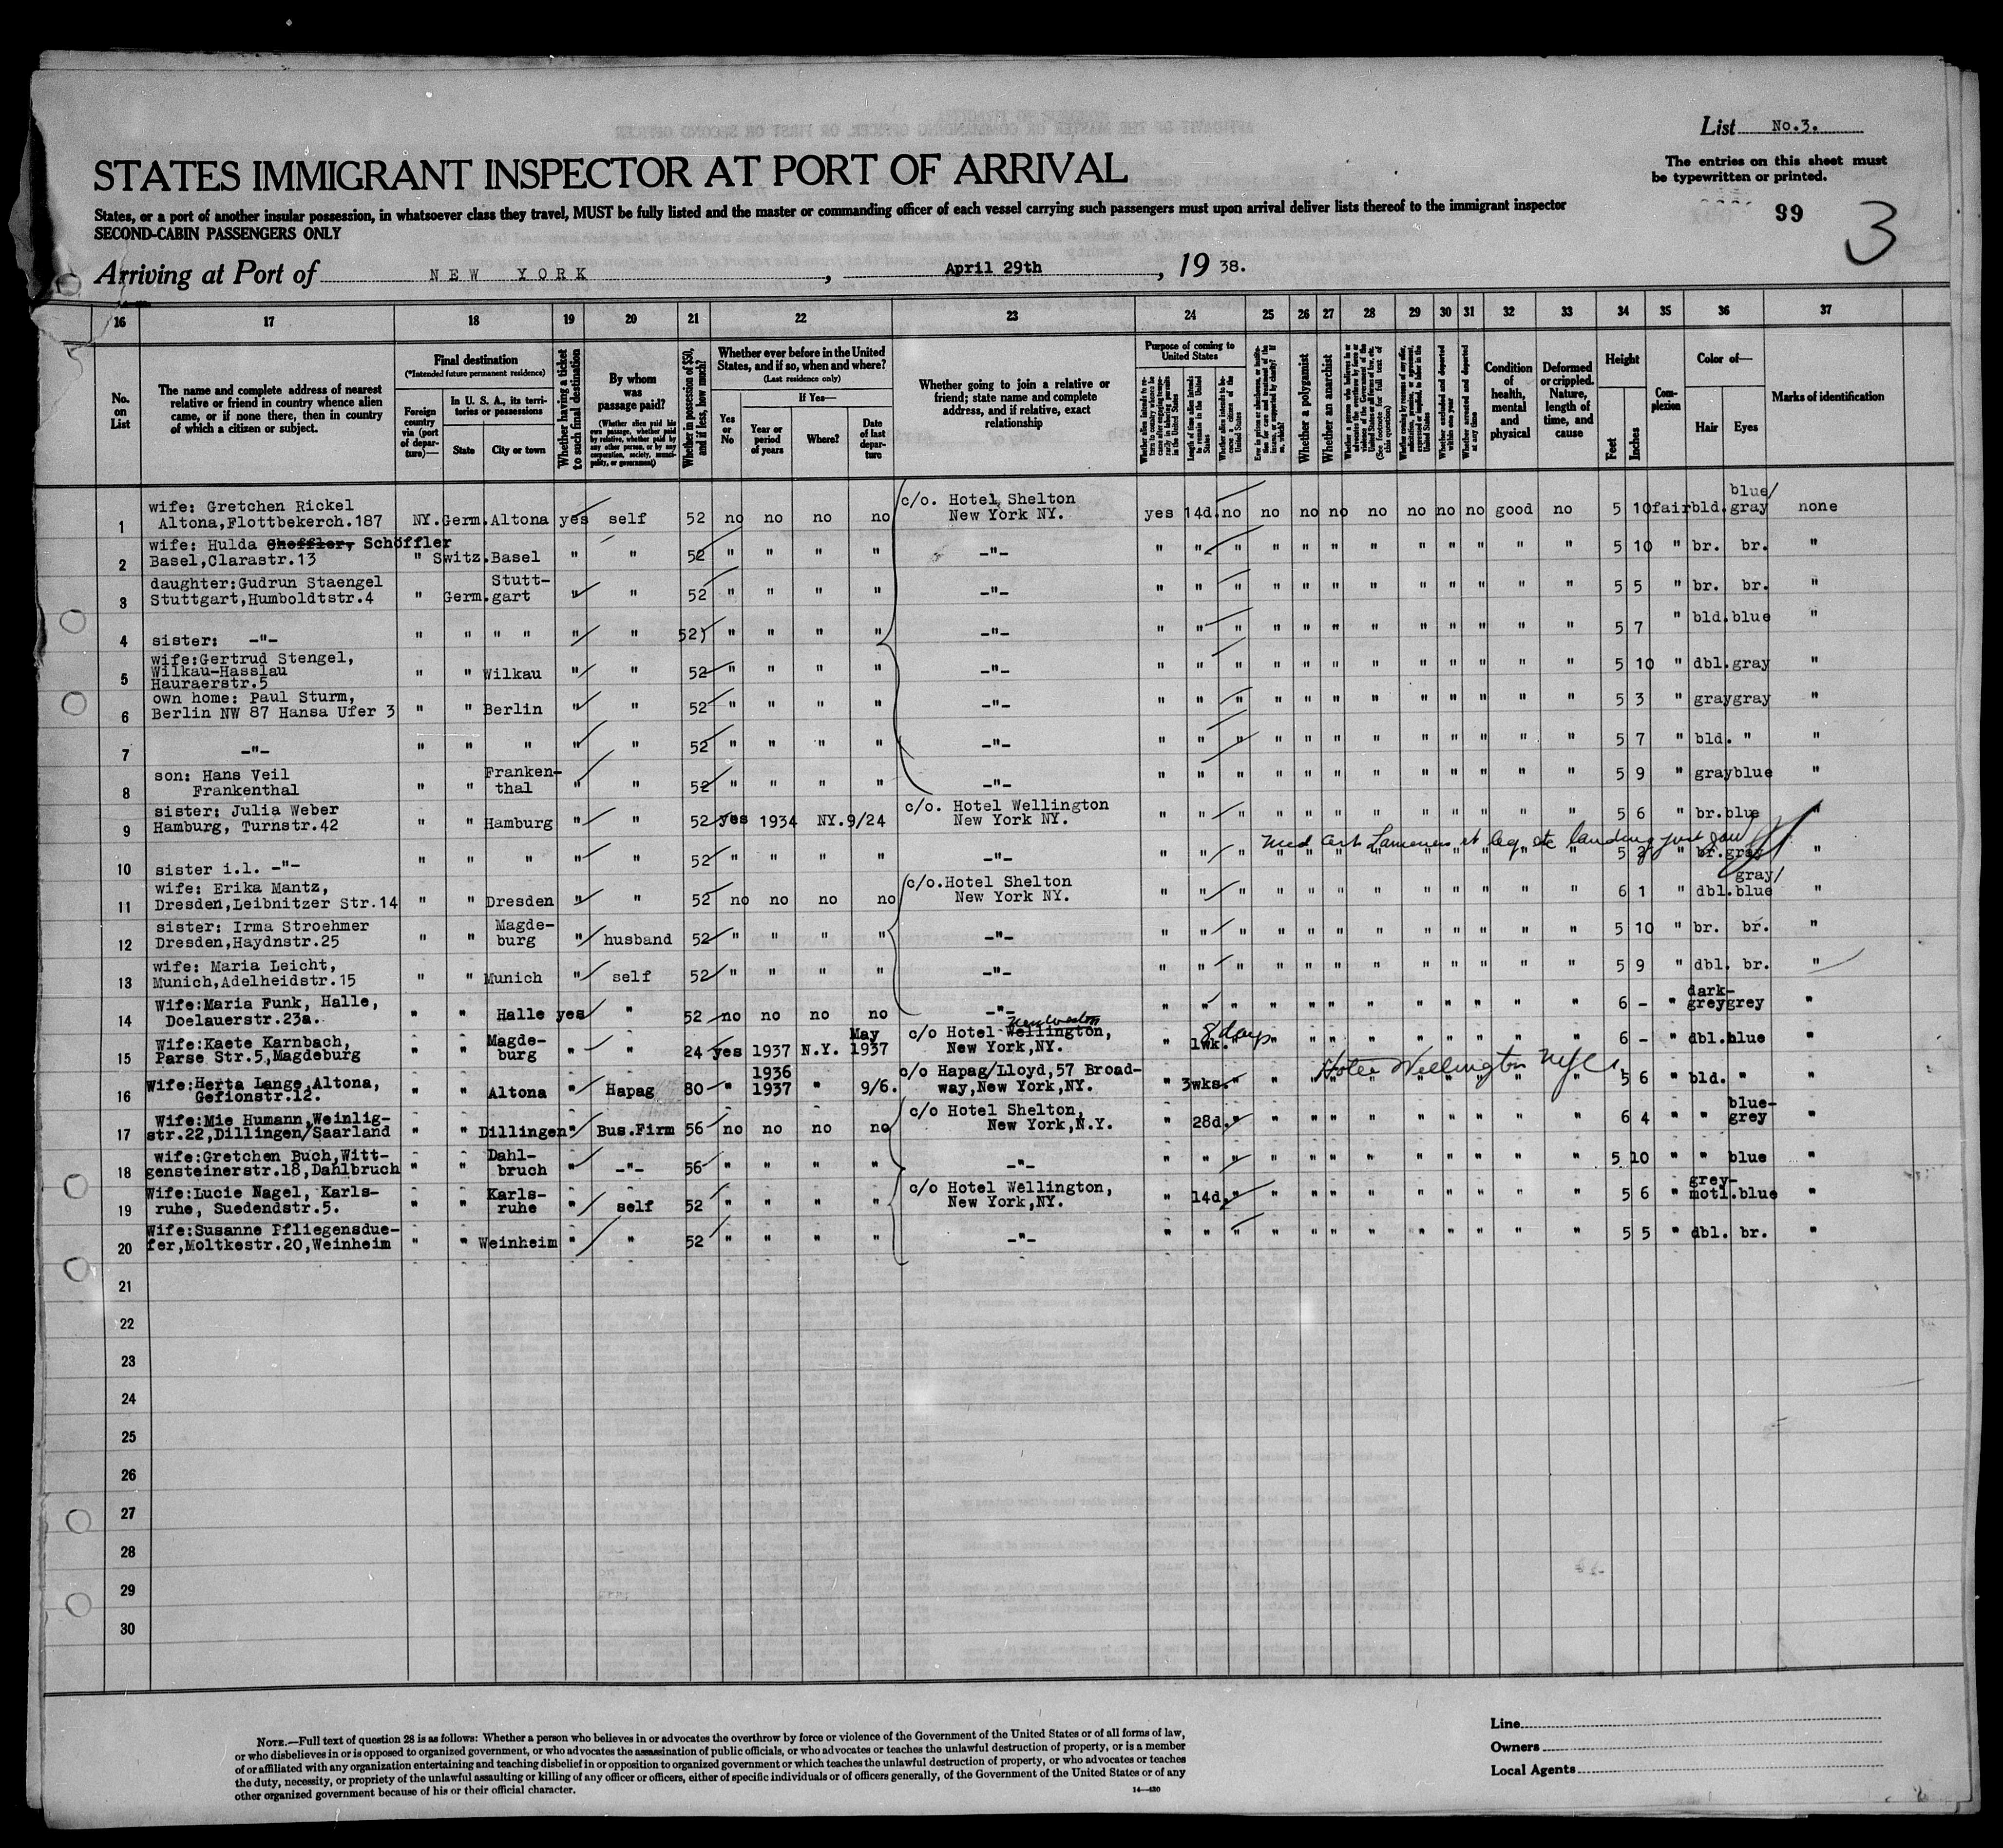 List No.3.
The entries on this sheet must
be typewritten or printed.
99
3
STATES IMMIGRANT INSPECTOR AT PORT OF ARRIVAL
States, or a port of another insular possession, in whatsoever class they travel, MUST be fully listed and the master or commanding officer of each vessel carrying such passengers must upon arrival deliver lists thereof to the immigrant inspector
SECOND-CABIN PASSENGERS ONLY
Arriving at Port of NEW YORK, April 29th, 19 38.
16 17 18 19 20 21 22 23 24 25 26 27 28 29 30 31 32 33 34 35 36 37
No. on List
The name and complete address of nearest relative or friend in country whence alien came, or if none there, then in country of which a citizen or subject.
Final destination
(*Intended future permanent residence)
Foreign country via (port of departure)—
In U. S. A., its territories or possessions
State
City or town
Whether having a ticket to such final destination
By whom was passage paid?
(Whether alien paid his own passage, whether paid by relative, whether paid by any other person, or by any corporation, society, municipality, or government)
Whether in possession of $50, and if less, how much?
Whether ever before in the United States, and if so, when and where?
(Last residence only)
Yes or No
If Yes—
Year or period of years
Where?
Date of last departure
Whether going to join a relative or friend; state name and complete address, and if relative, exact relationship
Purpose of coming to United States
Length of time alien intends to remain in the United States
Whether alien intends to become a citizen of the United States
Whether a polygamist
Whether an anarchist
Whether excluded and deported within one year
Whether arrested and deported at any time
Condition of health, mental and physical
Deformed or crippled. Nature, length of time, and cause
Height
Feet
Inches
Complexion
Color of—
Hair
Eyes
Marks of identification
1 wife: Gretchen Rickel
Altona,Flottbekerch.187 NY. Germ. Altona yes self 52 no no no no c/o. Hotel Shelton
New York NY. yes 14d. no no no no no no no no good no 5 10 fair bld. blue/
gray none
2 wife: Hulda Sheffler, Schöffler
Basel,Clarastr.13 " Switz. Basel " " 52 " " " " -"- " " " " " " " " " " " " 5 10 " br. br. "
3 daughter:Gudrun Staengel
Stuttgart,Humboldtstr.4 " Germ. Stutt-
gart " " 52 " " " " -"- " " " " " " " " " " " " 5 5 " br. br. "
4 sister: -"- " " " " " " 52) " " " " -"- " " " " " " " " " " " " 5 7 " bld. blue "
5 wife:Gertrud Stengel,
Wilkau-Hasslau
Hauraerstr.5 " " Wilkau " " 52 " " " " -"- " " " " " " " " " " " " 5 10 " dbl. gray "
6 own home: Paul Sturm,
Berlin NW 87 Hansa Ufer 3 " " Berlin " " 52 " " " " -"- " " " " " " " " " " " " 5 3 " gray gray "
7 -"- " " " " " 52 " " " " -"- " " " " " " " " " " " " 5 7 " bld. " "
8 son: Hans Veil
Frankenthal " " Franken-
thal " " 52 " " " " -"- " " " " " " " " " " " " 5 9 " gray blue "
9 sister: Julia Weber
Hamburg, Turnstr.42 " " Hamburg " " 52 yes 1934 NY. 9/24 c/o. Hotel Wellington
New York NY. " " " " " " " " " " " " 5 6 " br. blue "
10 sister i.l. -"- " " " " " 52 " " " " -"- " " " " " " " " " " " " 5 " br. gray "
11 wife: Erika Mantz,
Dresden,Leibnitzer Str.14 " " Dresden " " 52 no no no no c/o.Hotel Shelton
New York NY. " " " " " " " " " " " " 6 1 " dbl. gray/
blue "
12 sister: Irma Stroehmer
Dresden,Haydnstr.25 " " Magde-
burg " husband 52 " " " " -"- " " " " " " " " " " " " 5 10 " br. br. "
13 wife: Maria Leicht,
Munich,Adelheidstr.15 " " Munich " self 52 " " " " -"- " " " " " " " " " " " " 5 9 " dbl. br. "
14 Wife:Maria Funk, Halle,
Doelauerstr.23a. " " Halle yes " 52 no no no no -"- " " " " " " " " " " " " 6 - " dark-
grey grey "
15 Wife:Kaete Karnbach,
Parse Str.5,Magdeburg " " Magde-
burg " " 24 yes 1937 N.Y. May
1937 c/o Hotel Wellington,
New York,NY. " 1wk. 8 days " " " " " " " " " " 6 - " dbl. blue "
16 Wife:Herta Lange,Altona,
Gefionstr.12. " " Altona " Hapag 80 " 1936
1937 " 9/6. c/o Hapag/Lloyd,57 Broad-
way,New York,NY. " 3wks. " " " Hotel Wellington NYC 5 6 " bld. " "
17 Wife:Mie Humann,Weinlig-
str.22,Dillingen/Saarland " " Dillingen " Bus.Firm 56 no no no no c/o Hotel Shelton,
New York,N.Y. " 28d. " " " " " " " " " " 6 4 " " blue-
grey "
18 wife:Gretchen Buch,Witt-
gensteinerstr.18,Dahlbruch " " Dahl-
bruch " -"- 56 " " " " -"- " " " " " " " " " " " " 5 10 " " blue "
19 Wife:Lucie Nagel, Karls-
ruhe, Suedendstr.5. " " Karls-
ruhe " self 52 " " " " c/o Hotel Wellington,
New York,NY. " 14d. " " " " " " " " " " 5 6 " grey-
motl. blue "
20 Wife:Susanne Pfliegensdue-
fer,Moltkestr.20,Weinheim " " Weinheim " " 52 " " " " -"- " " " " " " " " " " " " 5 5 " dbl. br. "
21
22
23
24
25
26
27
28
29
30
NOTE.—Full text of question 28 is as follows: Whether a person who believes in or advocates the overthrow by force or violence of the Government of the United States or of all forms of law,
or who disbelieves in or is opposed to organized government, or who advocates the assassination of public officials, or who advocates or teaches the unlawful destruction of property, or is a member
of or affiliated with any organization entertaining and teaching disbelief in or opposition to organized government or which teaches the unlawful destruction of property, or who advocates or teaches
the duty, necessity, or propriety of the unlawful assaulting or killing of any officer or officers, either of specific individuals or of officers generally, of the Government of the United States or of any
other organized government because of his or their official character.
14—430
Line
Owners
Local Agents